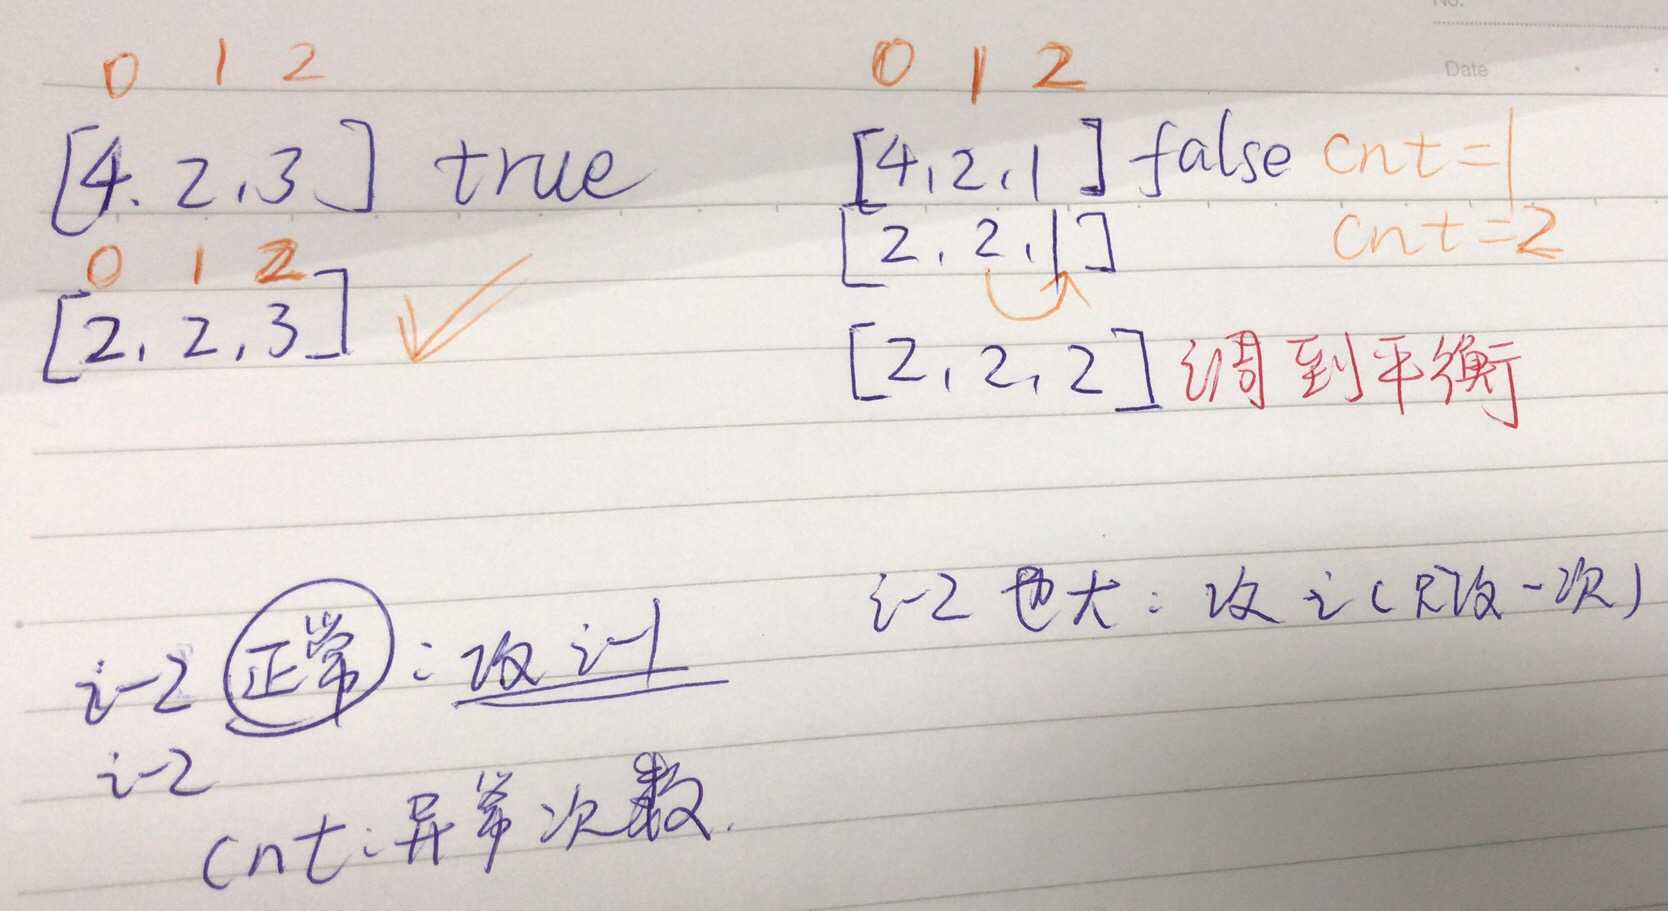 No.
Date
0 1 2
[4, 2, 3] true
0 1 2
[2, 2, 3]
0 1 2
[4, 2, 1] false cnt=1
[2, 2, 1] cnt=2
[2, 2, 2] 调到平衡
i-2 正常: 改 i-1
i-2
cnt: 异常次数.
i-2 也大: 改 i (只改一次)